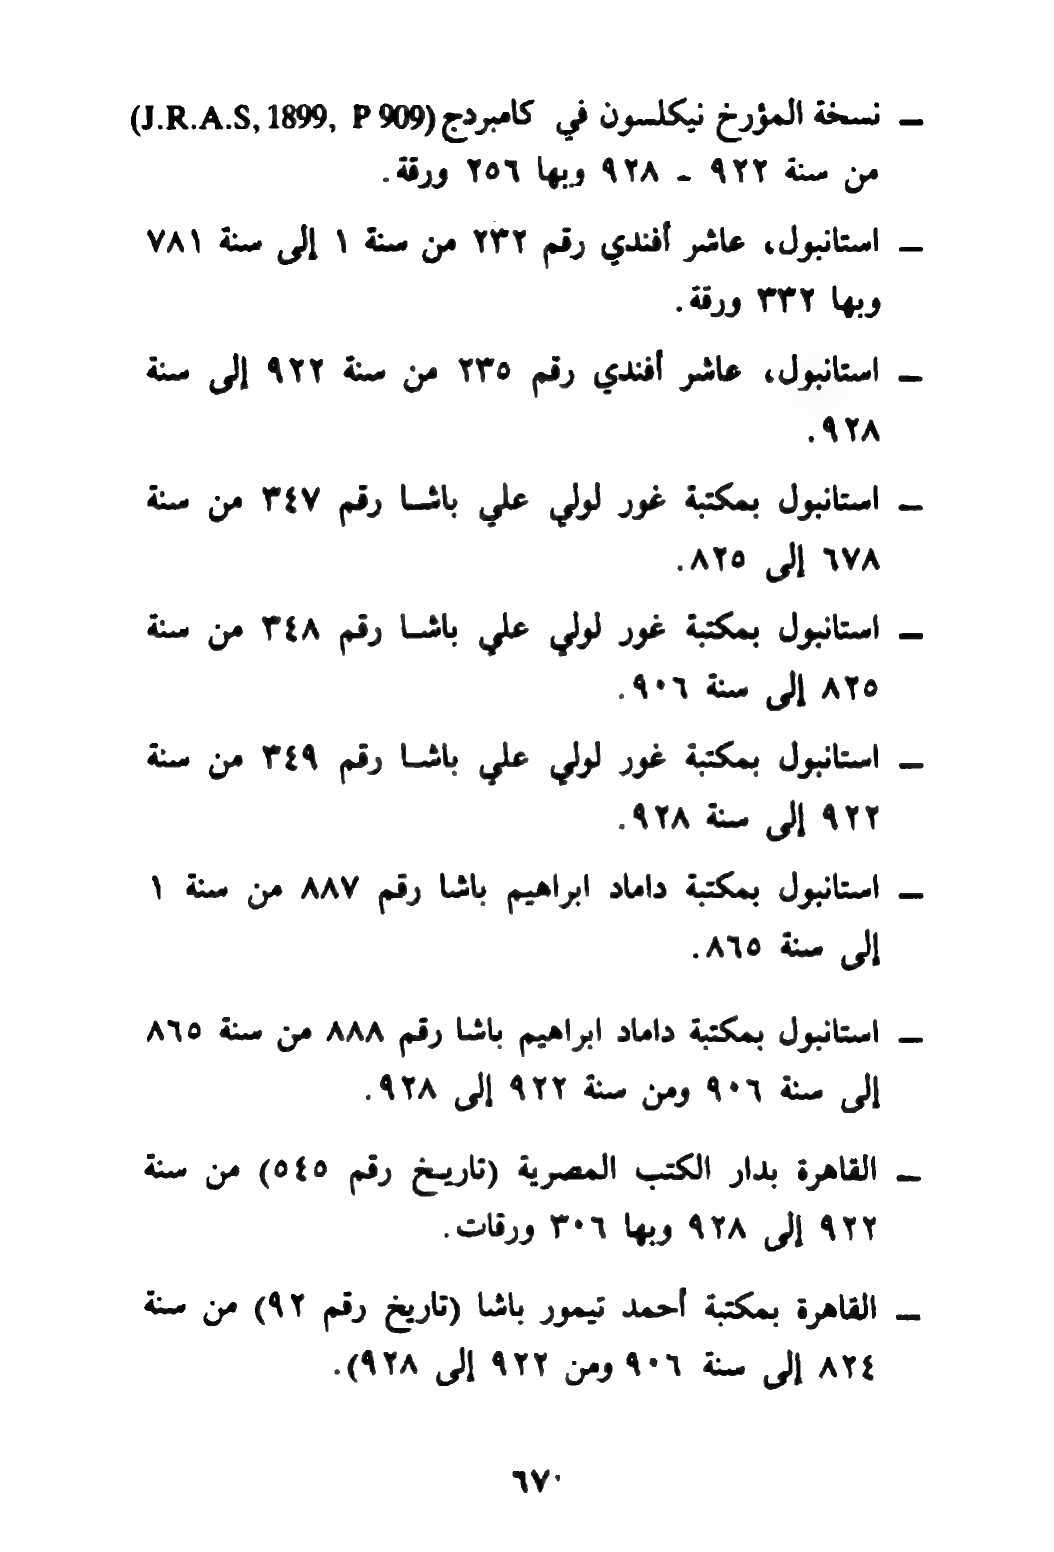 ـ نسخة المؤرخ نيكلسون في كامبردج (J.R.A.S, 1899, P 909)
من سنة ٩٢٢ ـ ٩٢٨ وبها ٢٥٦ ورقة.
ـ استانبول، عاشر أفندي رقم ٢٣٢ من سنة ١ إلى سنة ٧٨١
وبها ٣٣٢ ورقة.
ـ استانبول، عاشر أفندي رقم ٢٣٥ من سنة ٩٢٢ إلى سنة
٩٢٨.
ـ استانبول بمكتبة غور لولي علي باشا رقم ٣٤٧ من سنة
٦٧٨ إلى ٨٢٥.
ـ استانبول بمكتبة غور لولي علي باشا رقم ٣٤٨ من سنة
٨٢٥ إلى سنة ٩٠٦.
ـ استانبول بمكتبة غور لولي علي باشا رقم ٣٤٩ من سنة
٩٢٢ إلى سنة ٩٢٨.
ـ استانبول بمكتبة داماد ابراهيم باشا رقم ٨٨٧ من سنة ١
إلى سنة ٨٦٥.
ـ استانبول بمكتبة داماد ابراهيم باشا رقم ٨٨٨ من سنة ٨٦٥
إلى سنة ٩٠٦ ومن سنة ٩٢٢ إلى ٩٢٨.
ـ القاهرة بدار الكتب المصرية (تاريخ رقم ٥٤٥) من سنة
٩٢٢ إلى ٩٢٨ وبها ٣٠٦ ورقات.
ـ القاهرة بمكتبة أحمد تيمور باشا (تاريخ رقم ٩٢) من سنة
٨٢٤ إلى سنة ٩٠٦ ومن ٩٢٢ إلى ٩٢٨).
٦٧٠